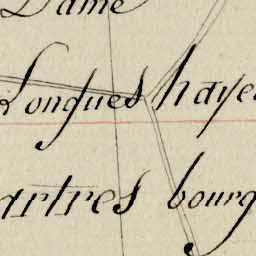 Dame
Longues hayes
artres bourg